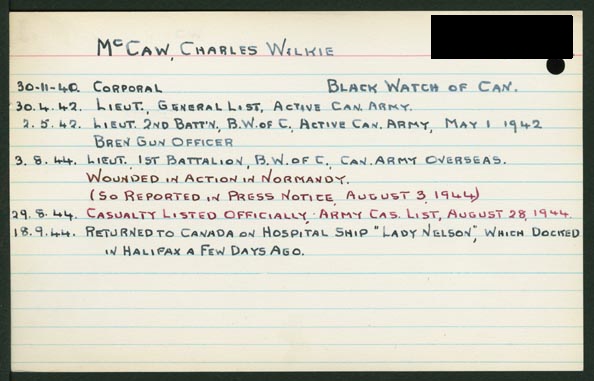 McCaw, Charles Wilkie
30-11-40. Corporal Black Watch of Can.
30.4.42. Lieut., General List, Active Can. Army.
2.5.42. Lieut. 2nd Batt'n, B.W. of C, Active Can. Army, May 1 1942
Bren Gun Officer
3.8.44. Lieut. 1st Battalion, B.W. of C, Can. Army Overseas.
Wounded in Action in Normandy.
(So Reported in Press Notice, August 3, 1944)
29.8.44. Casualty Listed Officially, Army Cas. List, August 28, 1944.
18.9.44. Returned to Canada on Hospital Ship "Lady Nelson", which docked
in Halifax a few days ago.